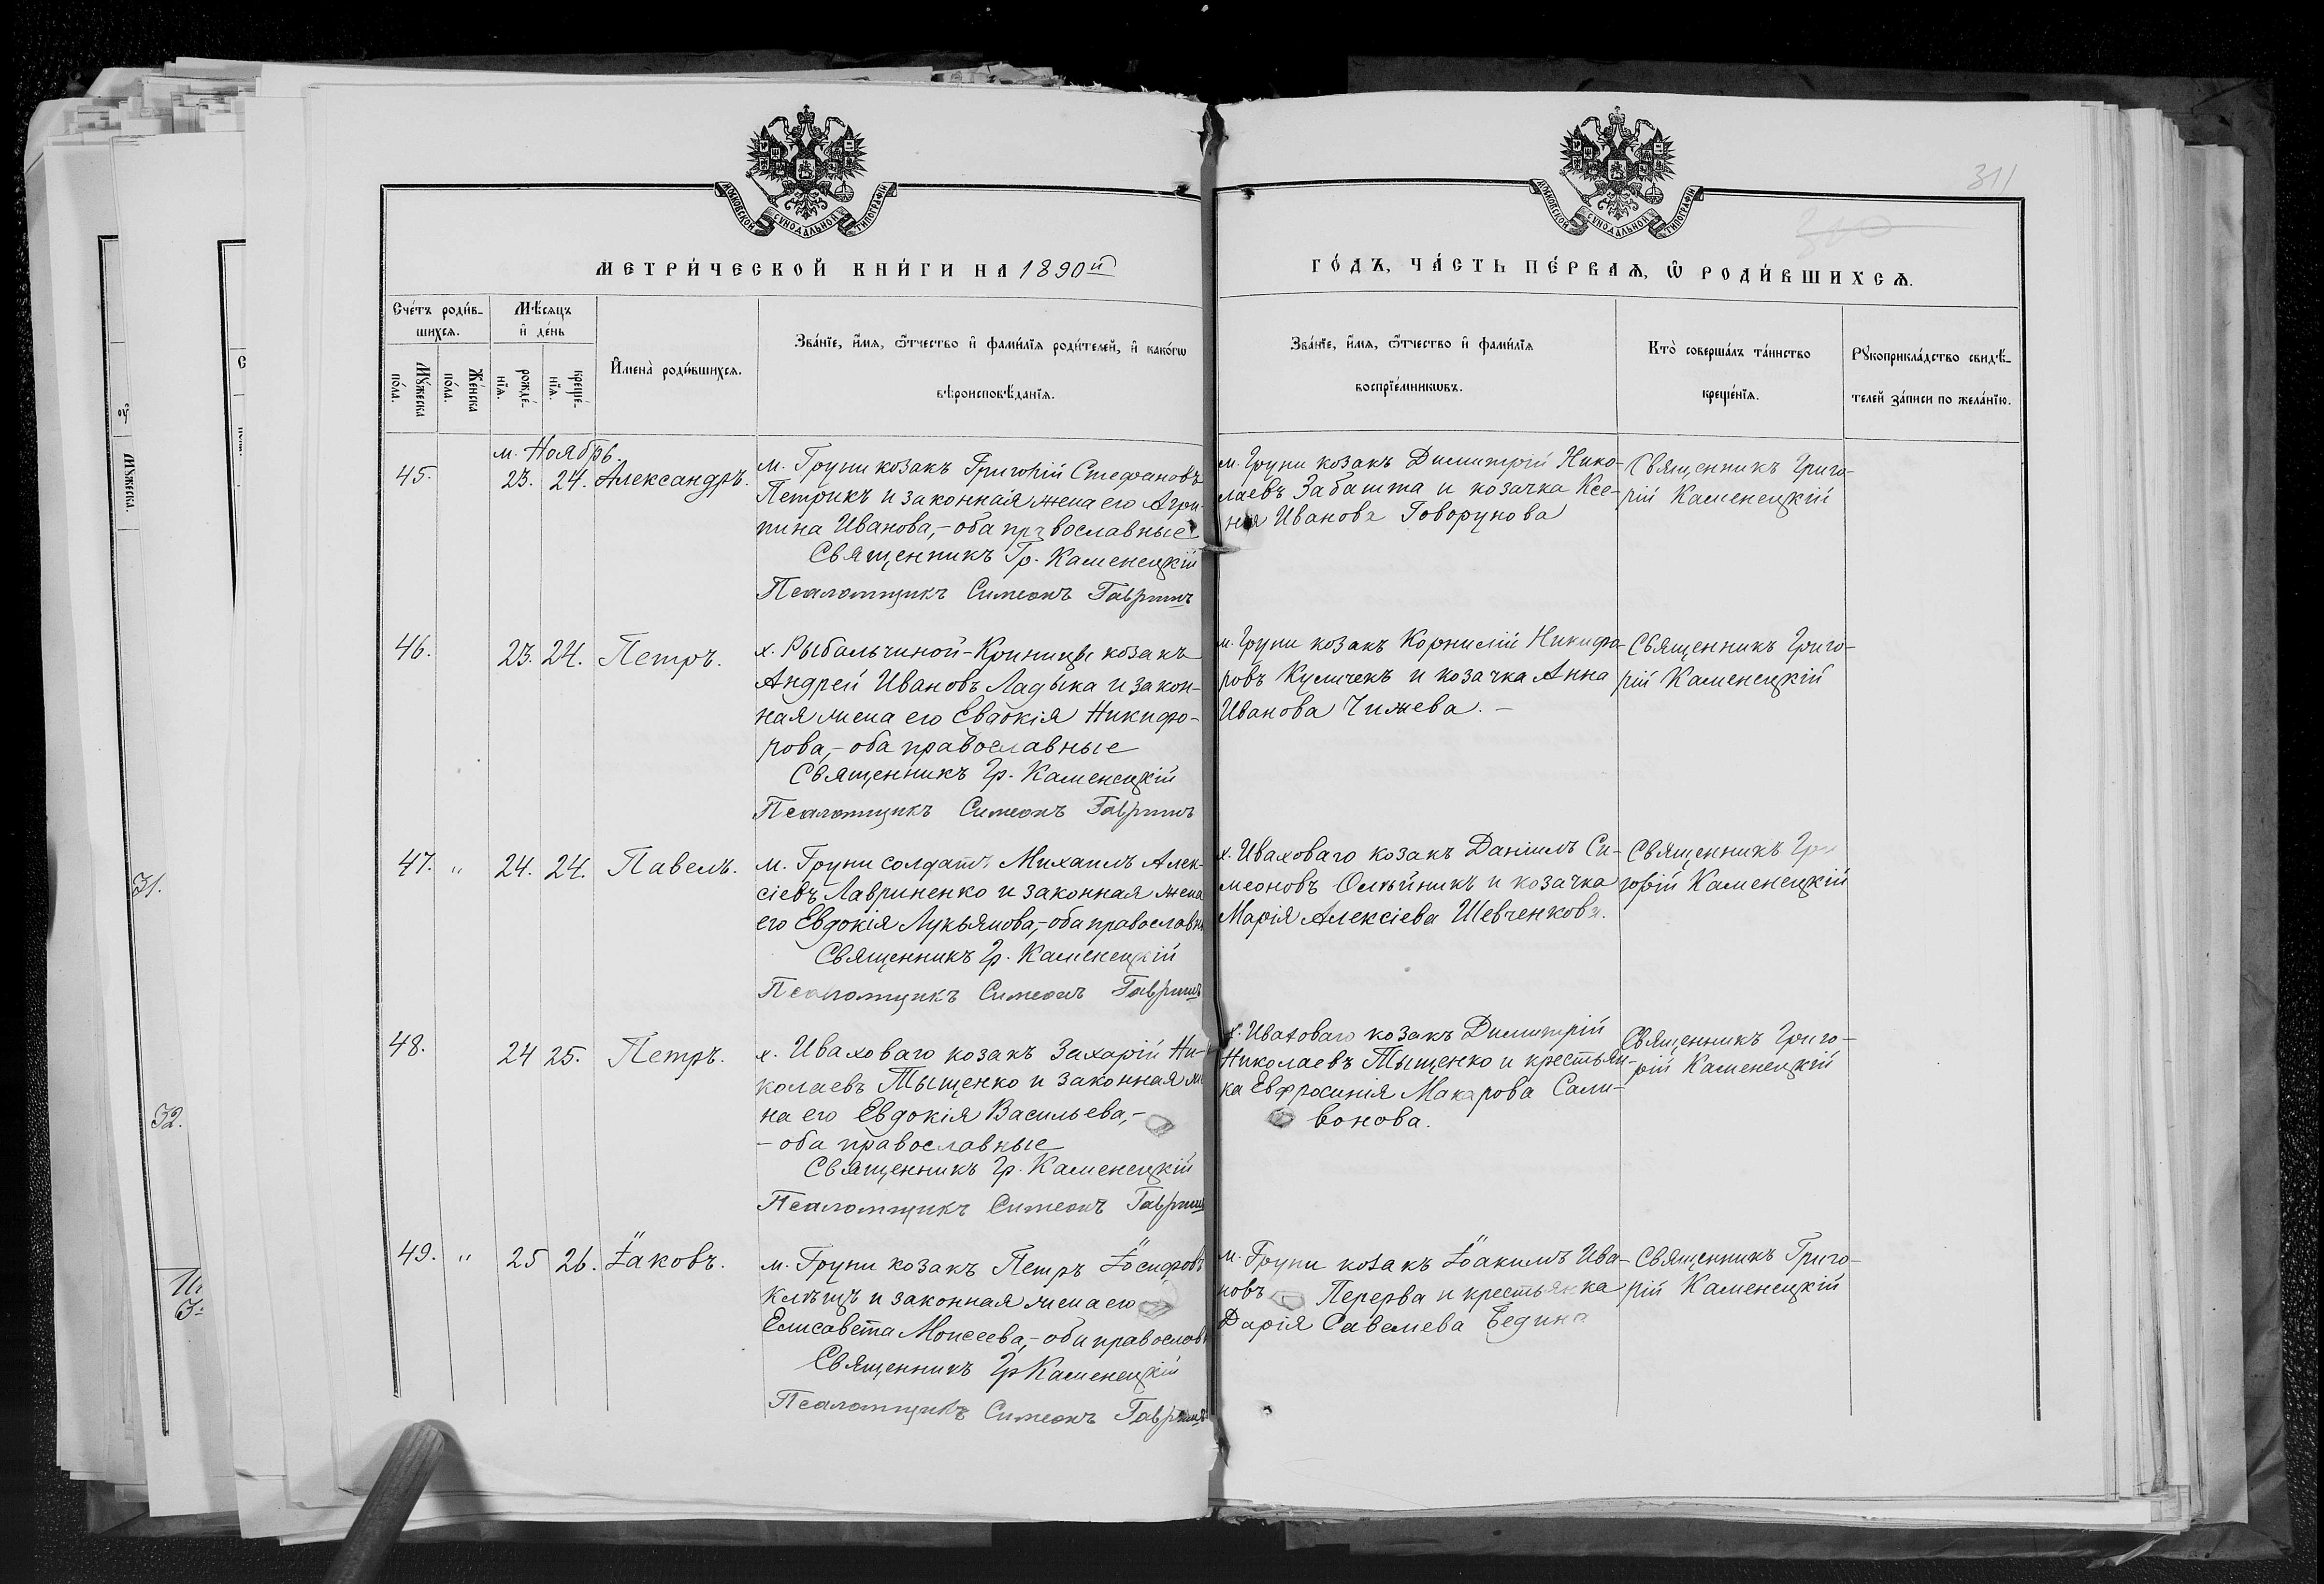 311
МОСКОВСКОЙ СѴНОДАЛЬНОЙ ТИПОГРАФІИ
МОСКОВСКОЙ СѴНОДАЛЬНОЙ ТИПОГРАФІИ
МЕТРИ́ЧЕСКОЙ КНИ́ГИ НА 1890й
ГО́ДЪ, ЧА́СТЬ ПЕ́РВАѦ, Ѡ РОДИ́ВШИХСѦ.
Сче́тъ роди́в-
шихсѧ.
Мѣ́сѧцъ
и де́нь
Мꙋ́жеска
по́ла.
Же́нска
по́ла.
рожде́-
нїѧ.
креще́-
нїѧ.
Имена̀ роди́вшихсѧ.
Зва́нїе, и́мѧ, ѻ́тчество и фами́лїѧ роди́телей, и како́гѡ
вѣроисповѣ́данїѧ.
Зва́нїе, и́мѧ, ѻ́тчество и фами́лїѧ
воспрїе́мникѡвъ.
Кто̀ соверша́лъ та́инство
креще́нїѧ.
Рꙋкоприкла́дство свидѣ́-
телей за́писи по жела́нїю.
м. Ноябрь.
45. 23. 24. Александръ.
м. Груни козакъ Григорій Стефановъ
Петрикъ и законная жена его Агри-
пина Иванова,- оба православные
Священникъ Гр. Каменецкій
Псаломщикъ Симеонъ
м. Груни козакъ Димитрій Нико-
лаевъ Забашта и козачка Ксе-
нія Иванова Говорунова
Священникъ Григо-
рій Каменецкій
46. 23. 24. Петръ.
х. Рыбальчиной-Криницы козакъ
Андрей Ивановъ Ладыка и закон-
ная жена его Евдокія Никифо-
рова,- оба православные
Священникъ Гр. Каменецкій
Псаломщикъ Симеонъ
м. Груни козакъ Корнилій Никифо-
ровъ Куличекъ и козачка Анна
Иванова Чижева. -
Священникъ Григо-
рій Каменецкій
47. " 24. 24. Павелъ.
м. Груни солдатъ Михаилъ Алек-
сіевъ Лавриненко и законная жена
его Евдокія Лукьянова,- оба православн
Священникъ Гр. Каменецкій
Псаломщикъ Симеонъ
х. Иваховаго козакъ Даніилъ Си-
меоновъ Олѣйникъ и козачка
Марія Алексіева Шевченкова.
Священникъ Гри
горій Каменецкій
48. 24 25. Петръ.
х. Иваховаго козакъ Захарій Ни-
колаевъ Тыщенко и законная же
на его Евдокія Васильева,-
- оба православные
Священникъ Гр. Каменецкій
Псаломщикъ Симеонъ
х. Иваховаго козакъ Димитрій
Николаевъ Тыщенко и крестьян-
ка Евфросинія Макарова Сали-
вонова.
Священникъ Григо-
рій Каменецкій
49. " 25 26. Іаковъ.
м. Груни козакъ Петръ Іосифовъ
Клѣщъ и законная жена его
Елисавета Моисеева,- оба православн
Священникъ Гр Каменецкій
Псаломщикъ Симеонъ
м. Груни козакъ Іоакимъ Ива-
новъ Перерва и крестьянка
Дарія Савелиева Бедина
Священникъ Григо-
рій Каменецкій
Мꙋ́жеска
31.
32.